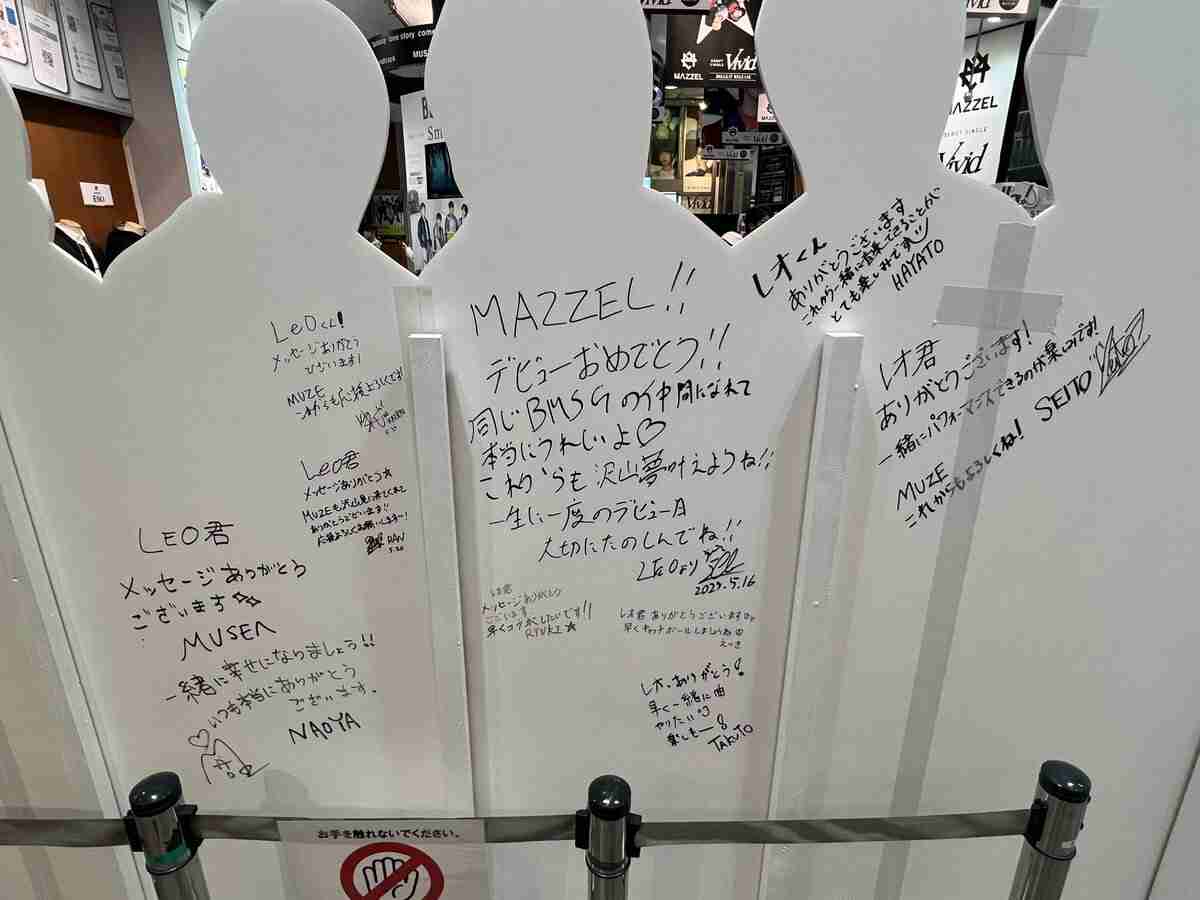 MAZZEL
DEBUT SINGLE
Vivid
MAZZEL
DEBUT SINGLE
Vivid
EIKI
LEOくん!
メッセージありがとう
ございます!
MUZE
これからも応援よろしくです!
LEO君
メッセージありがとう☆
MUZEも沢山見に来てくれて
ありがとうございます!!
応援よろしくお願いしますー!
RAN
5.20
LEO君
メッセージありがとう
ございます
MUSEへ
一緒に幸せになりましょう!!
いつも本当にありがとう
ございます.
NAOYA
MAZZEL!!
デビューおめでとう!!
同じBMSGの仲間になれて
本当にうれしいよ♡
これからも沢山夢叶えようね!!
一生に一度のデビュー日
大切にたのしんでね!!
LEOより
2023.5.16
レオ君
メッセージありがとう
ございます
早くコラボしたいです!!
RYUKI★
レオ君ありがとうございます
早くキャッチボールしましょうね
えいき
レオ、ありがとう!
早く一緒に曲
やりたい
楽しもー!
TAKUTO
レオくん
ありがとうございます
これから一緒に音楽できることが
とても楽しみです
HAYATO
レオ君
ありがとうございます!
一緒にパフォーマンスできるのが楽しみです!
MUZE
これからもよろしくね! SEITO
お手を触れないでください。